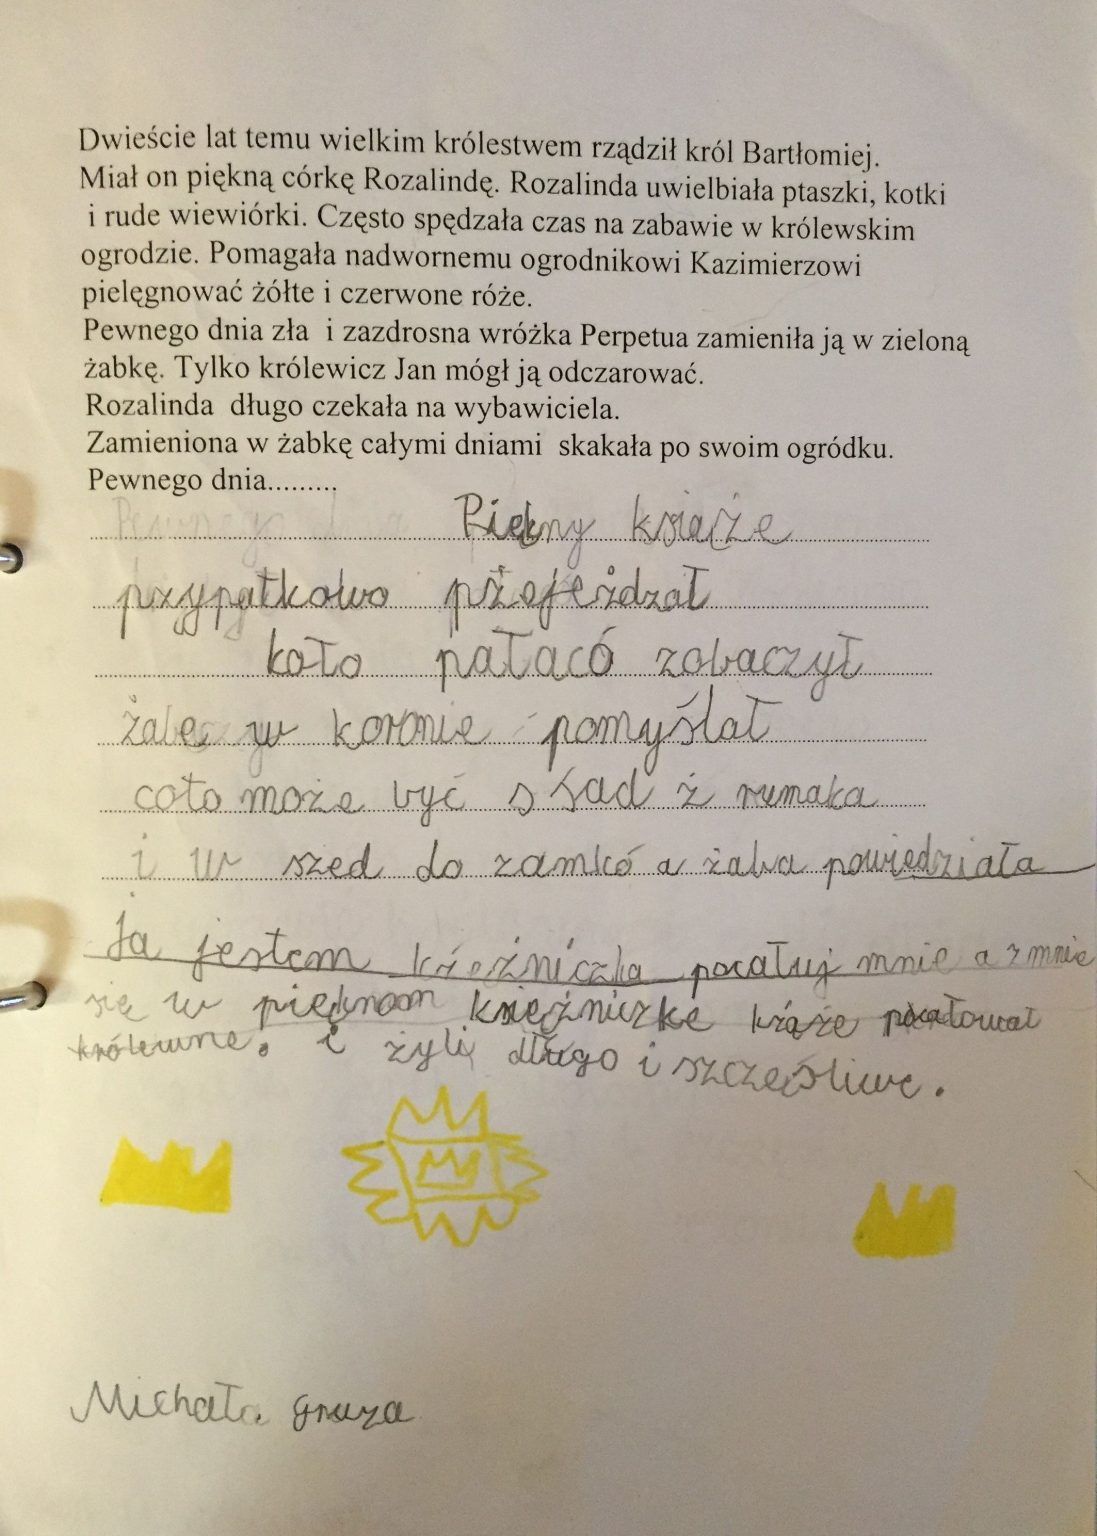 Dwieście lat temu wielkim królestwem rządził król Bartłomiej.
Miał on piękną córkę Rozalindę. Rozalinda uwielbiała ptaszki, kotki
i rude wiewiórki. Często spędzała czas na zabawie w królewskim
ogrodzie. Pomagała nadwornemu ogrodnikowi Kazimierzowi
pielęgnować żółte i czerwone róże.
Pewnego dnia zła i zazdrosna wróżka Perpetua zamieniła ją w zieloną
żabkę. Tylko królewicz Jan mógł ją odczarować.
Rozalinda długo czekała na wybawiciela.
Zamieniona w żabkę całymi dniami skakała po swoim ogródku.
Pewnego dnia.........
Piękny książe
przypatkowo pżejeżdzał
koło pałacó zobaczył
żabe w koronie pomyślał
coto może być s śad z rumaka
i w szed do zamkó a żaba powiedziała
Ja jestem kśeżniczka pocałuj mnie a zmnie
się w pięknom księżniczke kżąże pocałował
królewne. i żyli długo i szczęśliwe.
Michała gruza